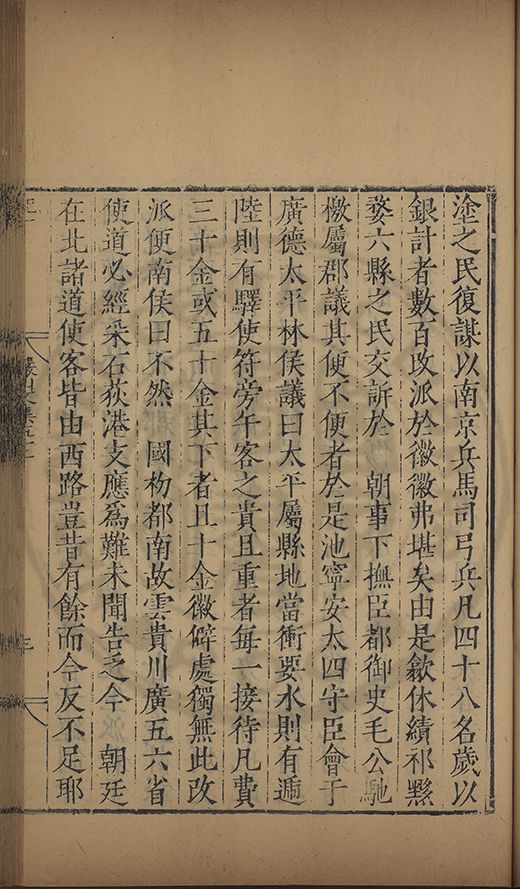 塗之民復謀以南京兵馬司弓兵凡四十八名歲以
銀計者數百改派於徽徽弗堪矣由是歙休績祁黟
婺六縣之民交訴於　朝事下撫臣都御史毛公馳
檄屬郡議其便不便者於是池寧安太四守臣會于
廣德太平林侯議曰太平屬縣地當衝要水則有遞
陸則有驛使符旁午客之貴且重者每一接待凡費
三十金或五十金其下者且十金徽僻處獨無此改
派便南侯曰不然　國初都南故雲貴川廣五六省
使道必經采石荻港支應爲難未聞告之今　朝廷
在北諸道使客皆由西路豈昔有餘而今反不足耶
三